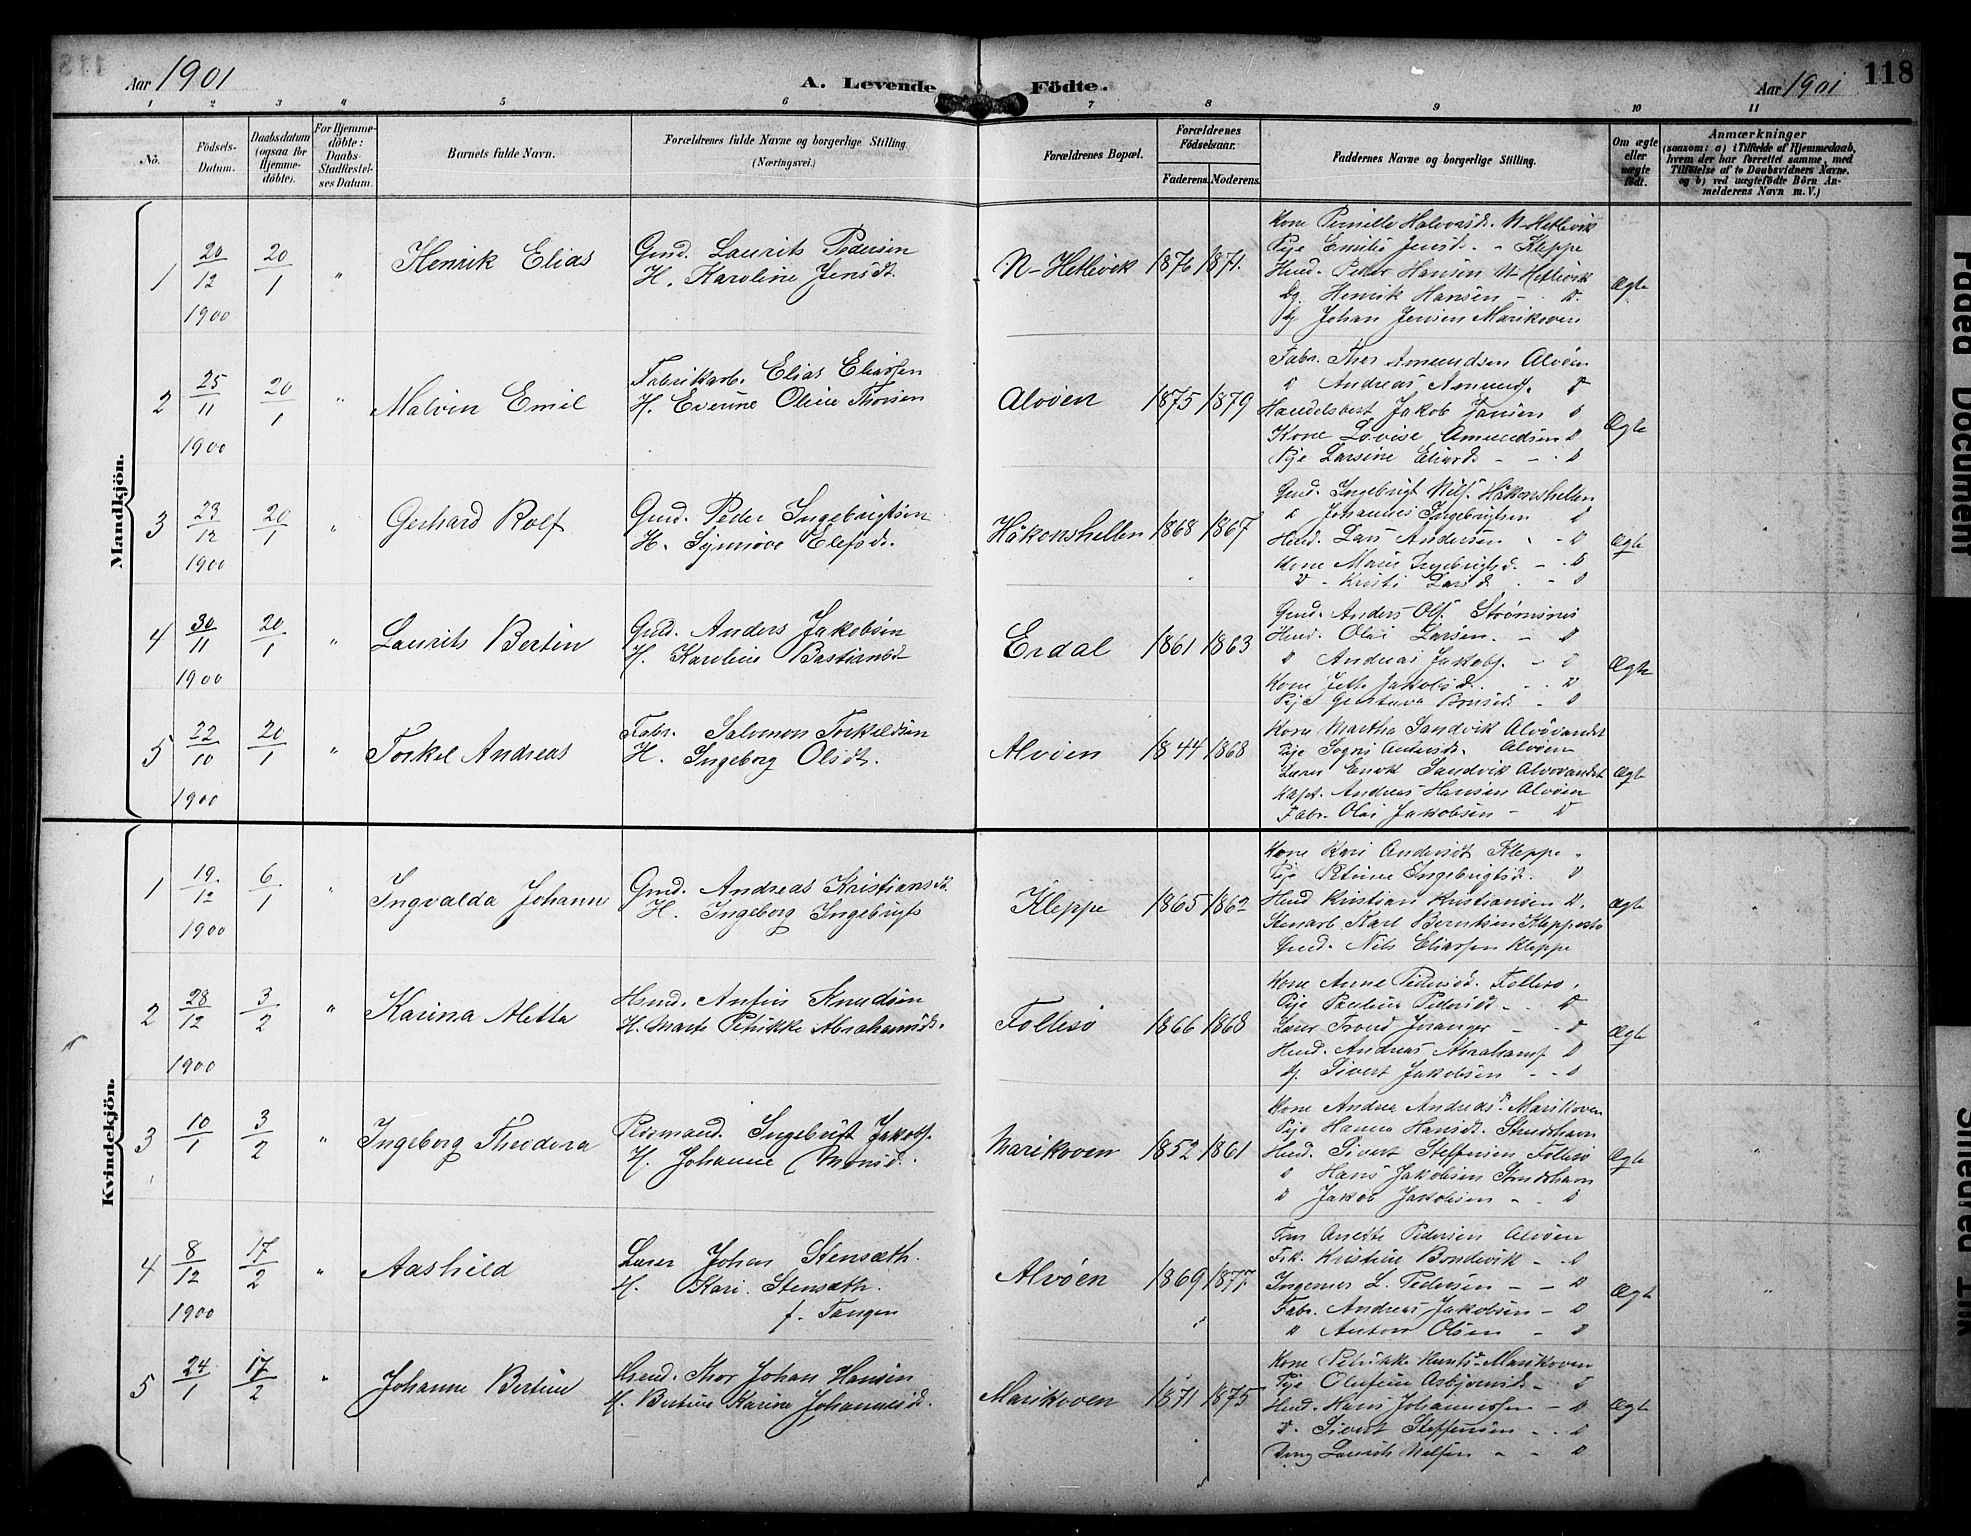 118
Aar 1901
A. Levende Födte.
Aar 1901
1 2 3 4 5 6 7 8 9 10 11
No.
Födsels-Datum.
Daabsdatum (ogsaa for Hjemmedöbte).
For Hjemmedöbte: Daabs-Stadfæstelses Datum.
Barnets fulde Navn.
Forældrenes fulde Navne og borgerlige Stilling. (Næringsvei.)
Forældrenes Bopæl.
Forældrenes Födselsaar.
Faderens. Moderens.
Faddernes Navne og borgerlige Stilling.
Om ægte eller uægte födt.
Anmærkninger
(saasom: a) i Tilfælde af Hjemmedaab, hvem der har forrettet samme, med Tilföielse af to Daabsvidners Navne. og b) ved uægtefödte Börn Anmelderens Navn m. V.)
Mandkjön.
1 20/12 1900 20/1 " Henrik Elias
Gmd. Laurits Pedersen
H. Karoline Jensdt.
N-Hetlevik 1876 1871.
Kone Pernille Halvorsd. N-Hetlevik
Pije Emilie Jensd. " Kleppe
Hmd. Peder Hansen N-Hetlevik
Dg. Henrik Hansen - D.
Dg Johan Jensen Marikoven
Ægte
2 25/11 1900 20/1 " Malvin Emil
Fabrikarb. Elias Eliassen
H. Everine Oline Thorsen
Alvöen 1875 1879
Fabr. Thor Amundsen Alvöen
D Andreas Amunds. D
Handelsbest Jakob Jansen D
Kone Lovise Amundsen D
Pije Larsine Eliasd - - D
Ægte
3 23/12 1900 20/1 " Gerhard Rolf
Gmd. Peder Ingebrigtsen
H. Synnöve Elefsd.
Håkonshellen 1868 1867
Gmd. Ingebrigt Nils. Håkonshellen
D Johannes Ingebrigtsen D
Hmd. Lars Andersen - D
Kone Marie Ingebrigtsd. - D
D - Kristi Larsd. - D
Ægte
4 30/11 1900 20/1 " Laurits Bertin
Gmd. Anders Jakobsen
H. Karoline Bastiansd
Erdal 1861 1863
Gmd. Anders Ols. Strömsnes
Hmd. Olai Larsen. - D
D Andreas Jakobs. - D
Kone Jette Jakobsd. - D
Pije Gustava Bensd. - D
Ægte
5 22/10 1900 20/1 " Torkel Andreas
Fabr. Salomon Torkeldsen
H. Ingeborg Olsdt.
Alvöen 1844 1868
Kone Martha Sandvik Alvövandet
Pije Sogni Andersd. Alvöen
Lærer Enok Sandvik Alvövandet
Kapt. Andreas Hansen Alvöen
Fabr. Olai Jakobsen - D
Ægte
Kvindekjön.
1 19/12 1900 6/1 " Ingvalda Johanne
Gmd. Andreas Kristians
H. Ingeborg Ingebrigts
Kleppe 1865 1862
Kone Kari Andersdt Kleppe
Pije Ingebrigtsd. D
Hmd Kristian Kristiansen D.
Stenarb. Karl Berntsen Kleppestö
Gmd. Nils Eliassen Kleppe
Ægte
2 28/12 1900 3/2 " Karina Aletta
Hsmd. Anfin Knudsen
H. Marte Petrikke Abrahamsd.
Follesö 1866 1868
Kone Anne Pedersd. Follesö.
Pije Pauline Pedersd - D
Lærer Trond Joranger - D
Hmd. Andreas Abrahams D
Dg. Sivert Jakobsen - - D
Ægte
3 10/1 3/2 " Ingeborg Theodora
Ingebrigt Jakobs.
H. Johanne Monsd.
Marikoven 1852 1861
Kone Andrea Andreasd. Marikoven
Pije Hanna Hansd. Strudshavn
Hmd. Sivert Steffensen Follesö
D Hans Jakobsen Strudshavn
D Jakob Jakobsen - - D
Ægte
4 8/12 1900 17/2 " Aashild
Lærer Johan Stensæth.
H. Kari Stensæth.
f. Tangen
Alvöen 1869 1877.
Fru Anette Pedersen Alvöen
Frk. Kristine Bondevik - D
Ingeniör L. Pedersen - - D
Fabr. Andreas Jakobsen - D
" Anton Olsen - D
Ægte
5 24/1 17/2 " Johanne Bertine
Hsmd. Thor Johan Hansen
H. Bertine Karine Johannesd.
Marikoven 1871 1875
Kone Petrikke Knutsd Marikoven
Pije Olufine Asbjörnsd. - D
Hmd. Hans Johannessen - D
D. Sivert Steffensen - - D
Dreng Laurits Nilsen - - D
Ægte
Faded Document
Smeared Ink